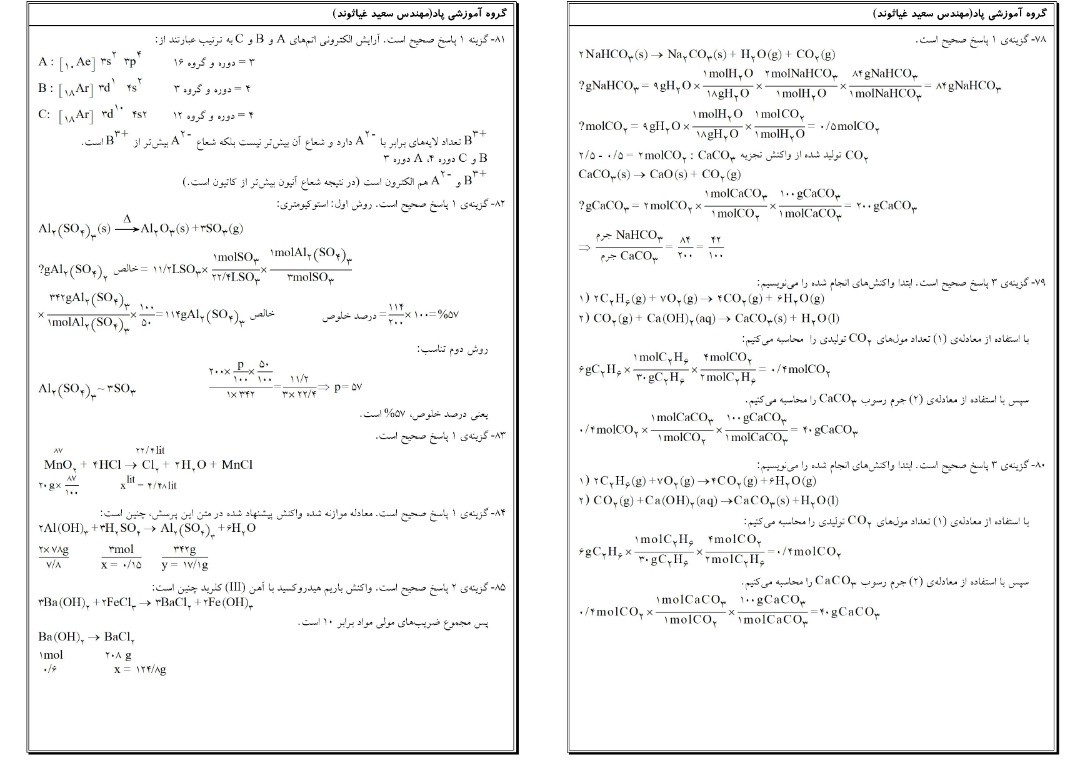 گروه آموزشی پاد(مهندس سعید غیاثوند)
۷۸- گزینه‌ی ۱ پاسخ صحیح است.
۲NaHCO۳(s) → Na۲CO۳(s) + H۲O(g) + CO۲(g)
?gNaHCO۳ = ۹gH۲O × ۱molH۲O/۱۸gH۲O × ۲molNaHCO۳/۱molH۲O × ۸۴gNaHCO۳/۱molNaHCO۳ = ۸۴gNaHCO۳
?molCO۲ = ۹gH۲O × ۱molH۲O/۱۸gH۲O × ۱molCO۲/۱molH۲O = ۰/۵molCO۲
CO۲ تولید شده از واکنش تجزیه CaCO۳ : ۲/۵ - ۰/۵ = ۲molCO۲
CaCO۳(s) → CaO(s) + CO۲(g)
?gCaCO۳ = ۲molCO۲ × ۱molCaCO۳/۱molCO۲ × ۱۰۰gCaCO۳/۱molCaCO۳ = ۲۰۰gCaCO۳
⇒ جرم NaHCO۳/جرم CaCO۳ = ۸۴/۲۰۰ = ۴۲/۱۰۰
۷۹- گزینه‌ی ۳ پاسخ صحیح است. ابتدا واکنش‌های انجام شده را می‌نویسیم:
۱) ۲C۲H۶(g) + ۷O۲(g) → ۴CO۲(g) + ۶H۲O(g)
۲) CO۲(g) + Ca(OH)۲(aq) → CaCO۳(s) + H۲O(l)
با استفاده از معادله‌ی (۱) تعداد مول‌های CO۲ تولیدی را محاسبه می‌کنیم:
۶gC۲H۶ × ۱molC۲H۶/۳۰gC۲H۶ × ۴molCO۲/۲molC۲H۶ = ۰/۴molCO۲
سپس با استفاده از معادله‌ی (۲) جرم رسوب CaCO۳ را محاسبه می‌کنیم.
۰/۴molCO۲ × ۱molCaCO۳/۱molCO۲ × ۱۰۰gCaCO۳/۱molCaCO۳ = ۴۰gCaCO۳
۸۰- گزینه‌ی ۳ پاسخ صحیح است. ابتدا واکنش‌های انجام شده را می‌نویسیم:
۱) ۲C۲H۶(g) + ۷O۲(g) → ۴CO۲(g) + ۶H۲O(g)
۲) CO۲(g) + Ca(OH)۲(aq) → CaCO۳(s) + H۲O(l)
با استفاده از معادله‌ی (۱) تعداد مول‌های CO۲ تولیدی را محاسبه می‌کنیم:
۶gC۲H۶ × ۱molC۲H۶/۳۰gC۲H۶ × ۴molCO۲/۲molC۲H۶ = ۰/۴molCO۲
سپس با استفاده از معادله‌ی (۲) جرم رسوب CaCO۳ را محاسبه می‌کنیم.
۰/۴molCO۲ × ۱molCaCO۳/۱molCO۲ × ۱۰۰gCaCO۳/۱molCaCO۳ = ۴۰gCaCO۳
گروه آموزشی پاد(مهندس سعید غیاثوند)
۸۱- گزینه ۱ پاسخ صحیح است. آرایش الکترونی اتم‌های A و B و C به ترتیب عبارتند از:
A : [۱۰Ae] ۳s۲ ۳p۴ ۳ = دوره و گروه ۱۶
B : [۱۸Ar] ۳d۱ ۴s۲ ۴ = دوره و گروه ۳
C: [۱۸Ar] ۳d۱۰ ۴s۲ ۴ = دوره و گروه ۱۲
B۳+ تعداد لایه‌های برابر با A۲- دارد و شعاع آن بیش‌تر نیست بلکه شعاع A۲- بیش‌تر از B۳+ است.
B و C دوره ۴، A دوره ۳
B۳+ و A۲- هم الکترون است (در نتیجه شعاع آنیون بیش‌تر از کاتیون است.)
۸۲- گزینه‌ی ۱ پاسخ صحیح است. روش اول: استوکیومتری:
Al۲(SO۴)۳(s) —Δ→ Al۲O۳(s) + ۳SO۳(g)
?gAl۲(SO۴)۳ خالص = ۱۱/۲LSO۳ × ۱molSO۳/۲۲/۴LSO۳ × ۱molAl۲(SO۴)۳/۳molSO۳
× ۳۴۲gAl۲(SO۴)۳/۱molAl۲(SO۴)۳ × ۱۰۰/۵۰ = ۱۱۴gAl۲(SO۴)۳ خالص درصد خلوص = ۱۱۴/۲۰۰ × ۱۰۰ = %۵۷
روش دوم تناسب:
Al۲(SO۴)۳ ~ ۳SO۳ (۲۰۰ × p/۱۰۰ × ۵۰/۱۰۰)/(۱ × ۳۴۲) = ۱۱/۲/(۳ × ۲۲/۴) ⇒ p = ۵۷
یعنی درصد خلوص، ۵۷% است.
۸۳- گزینه‌ی ۱ پاسخ صحیح است.
۸۷ ۲۲/۴lit
MnO۲ + ۴HCl → Cl۲ + ۲H۲O + MnCl
۲۰g × ۸۷/۱۰۰ xlit = ۴/۴۸lit
۸۴- گزینه‌ی ۱ پاسخ صحیح است. معادله موازنه شده واکنش پیشنهاد شده در متن این پرسش، چنین است:
۲Al(OH)۳ + ۳H۲SO۴ → Al۲(SO۴)۳ + ۶H۲O
۲×۷۸g/۷/۸ ۳mol/x = ۰/۱۵ ۳۴۲g/y = ۱۷/۱g
۸۵- گزینه‌ی ۲ پاسخ صحیح است. واکنش باریم هیدروکسید با آهن (III) کلرید چنین است:
۳Ba(OH)۲ + ۲FeCl۳ → ۳BaCl۲ + ۲Fe(OH)۳
پس مجموع ضریب‌های مولی مواد برابر ۱۰ است.
Ba(OH)۲ → BaCl۲
۱mol ۲۰۸ g
۰/۶ x = ۱۲۴/۸g